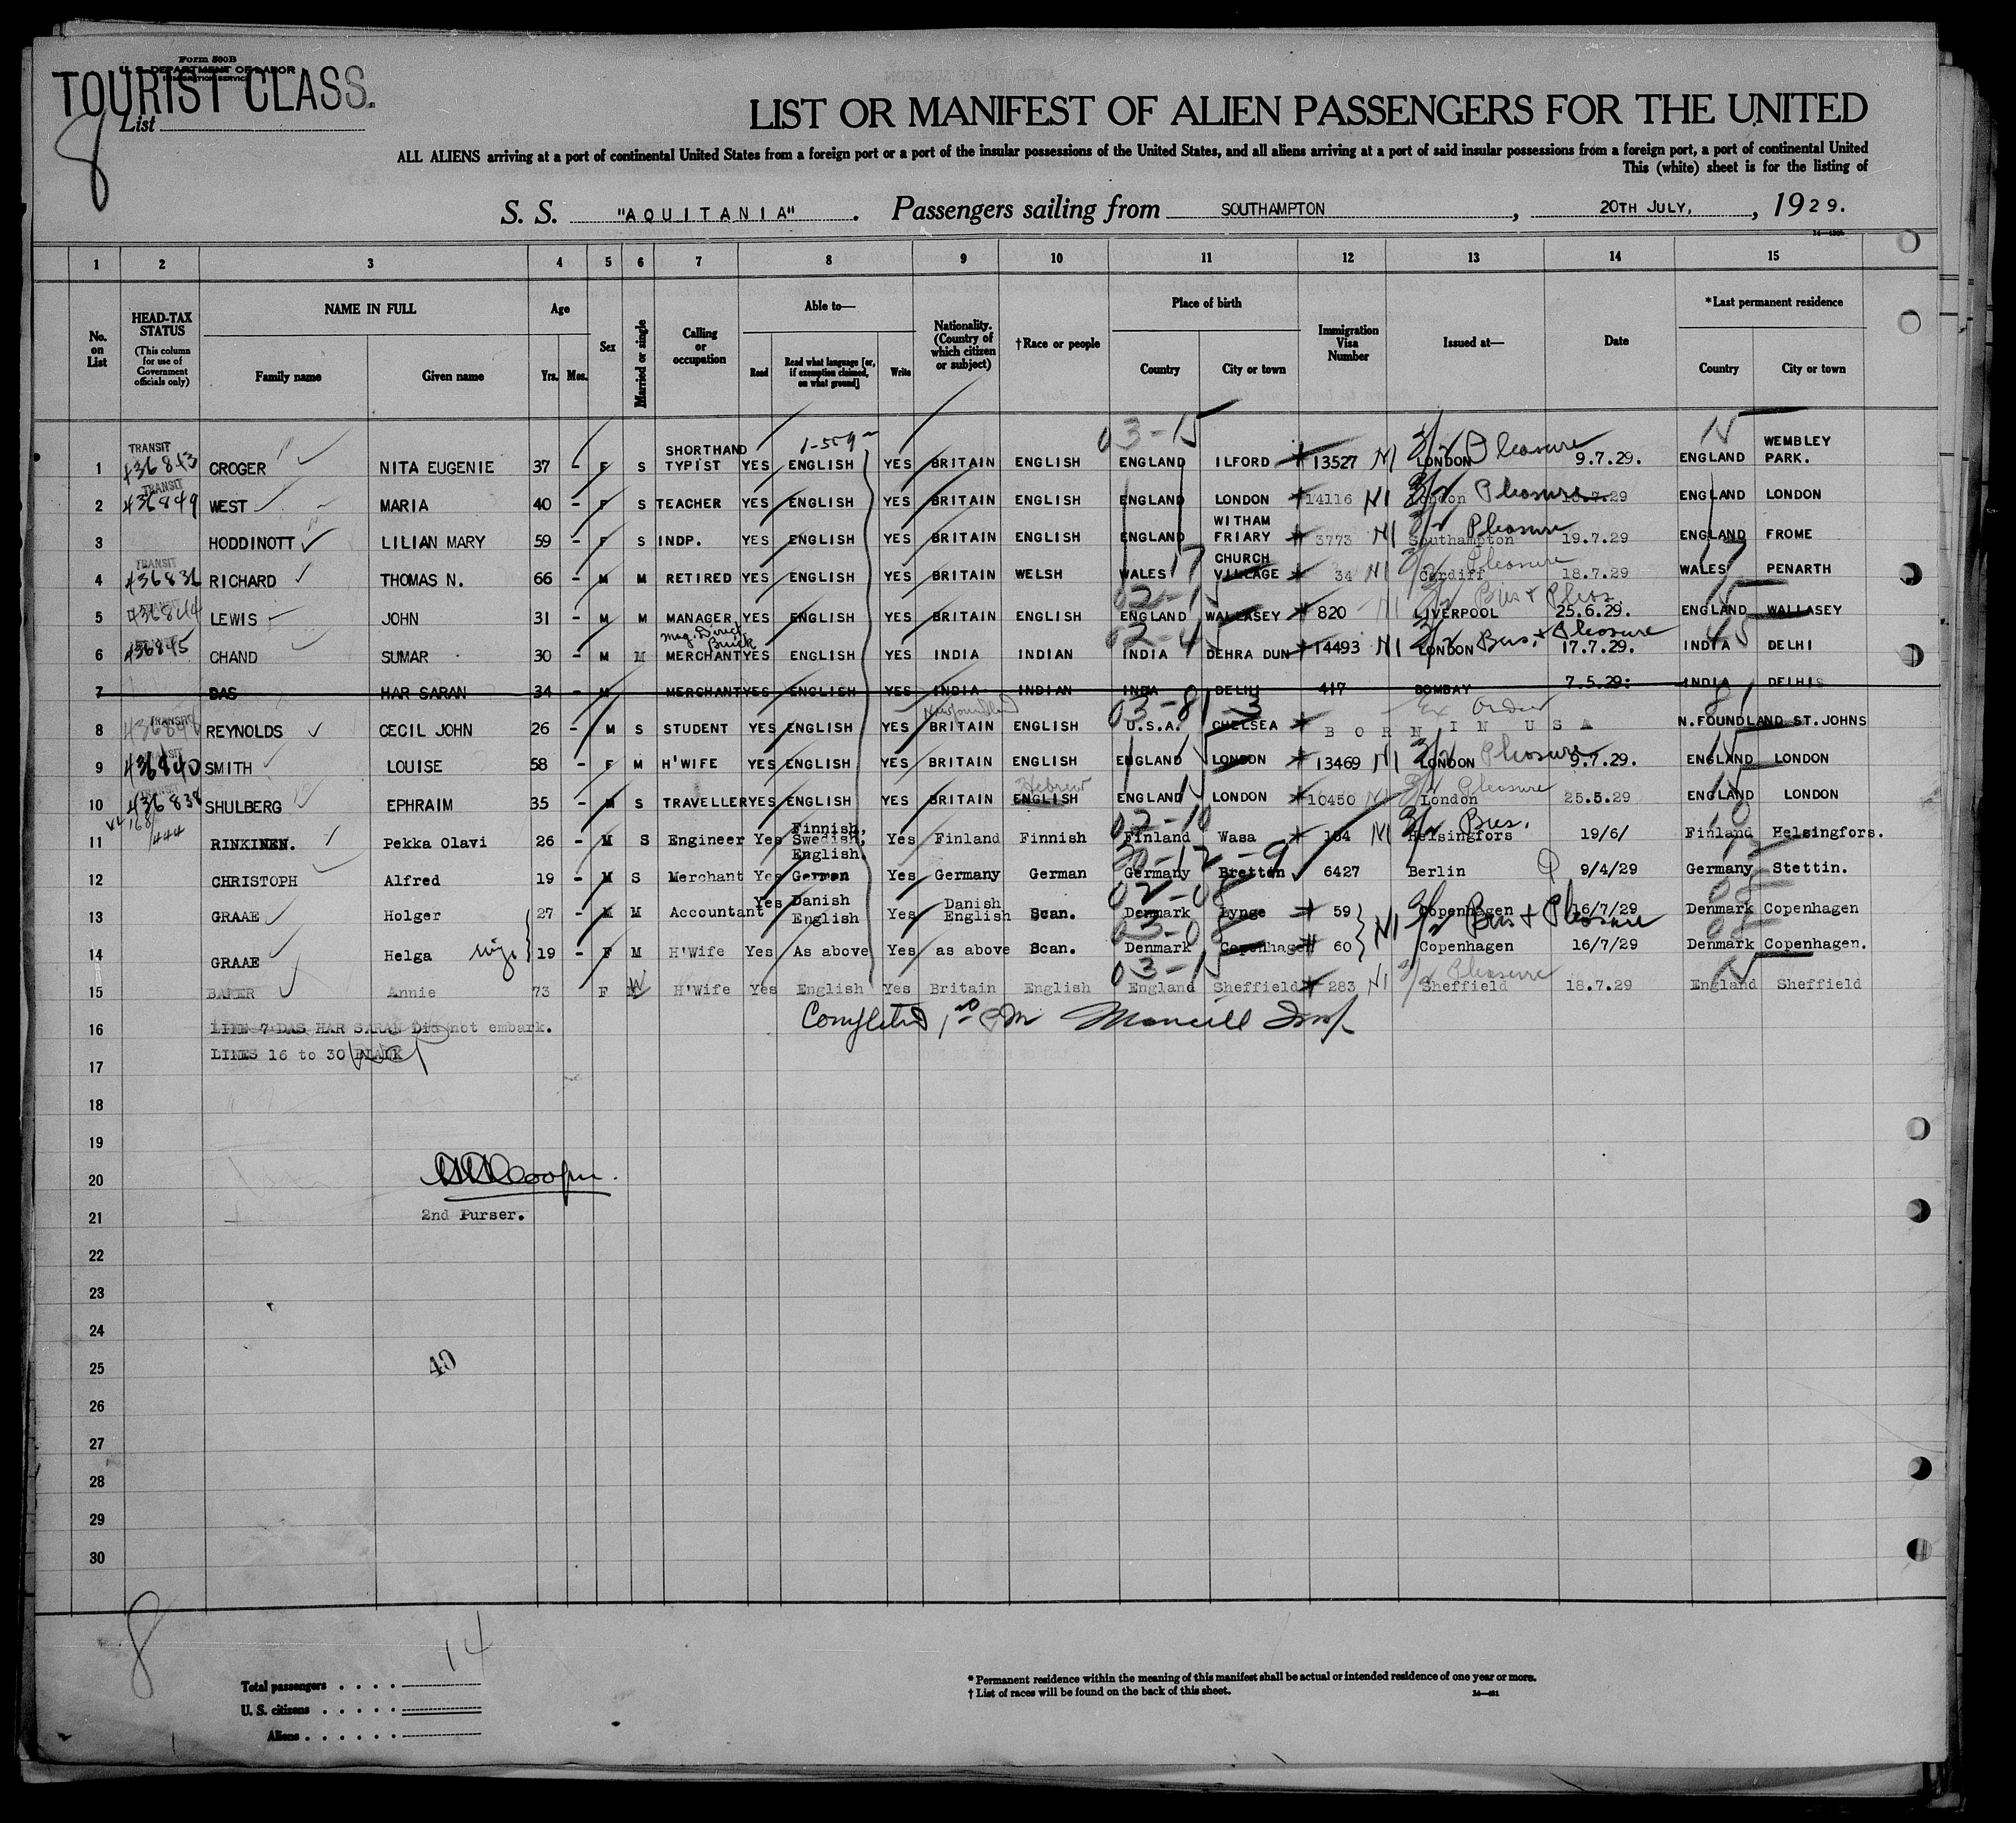 Form 500B
U. S. DEPARTMENT OF LABOR
IMMIGRATION SERVICE
TOURIST CLASS.
8 List
LIST OR MANIFEST OF ALIEN PASSENGERS FOR THE UNITED
ALL ALIENS arriving at a port of continental United States from a foreign port or a port of the insular possessions of the United States, and all aliens arriving at a port of said insular possessions from a foreign port, a port of continental United
This (white) sheet is for the listing of
S. S. "AQUITANIA". Passengers sailing from SOUTHAMPTON, 20TH JULY, , 1929.
1 2 3 4 5 6 7 8 9 10 11 12 13 14 15
No. on List
HEAD-TAX STATUS (This column for use of Government officials only)
NAME IN FULL Family name Given name
Age Yrs. Mos.
Sex
Married or single
Calling or occupation
Able to— Read Read what language [or, if exemption claimed, on what ground] Write
Nationality. (Country of which citizen or subject)
†Race or people
Place of birth Country City or town
Immigration Visa Number
Issued at—
Date
*Last permanent residence Country City or town
1 TRANSIT 436843 CROGER NITA EUGENIE 37 - F S SHORTHAND TYPIST YES 1-559 ENGLISH YES BRITAIN ENGLISH 03-15 ENGLAND ILFORD 13527 NI 3/2 Pleasure LONDON 9.7.29. 15 ENGLAND WEMBLEY PARK.
2 TRANSIT 436849 WEST MARIA 40 - F S TEACHER YES ENGLISH YES BRITAIN ENGLISH ENGLAND LONDON 14116 NI London Pleasure .7.29 ENGLAND LONDON
3 HODDINOTT LILIAN MARY 59 - F S INDP. YES ENGLISH YES BRITAIN ENGLISH ENGLAND WITHAM FRIARY 3773 NI Pleasure Southampton 19.7.29 ENGLAND FROME
4 TRANSIT 436836 RICHARD THOMAS N. 66 - M M RETIRED YES ENGLISH YES BRITAIN WELSH WALES 17 CHURCH VILLAGE 34 NI Pleasure Cardiff 18.7.29 WALES 17 PENARTH
5 436844 LEWIS JOHN 31 - M M MANAGER YES ENGLISH YES BRITAIN ENGLISH 02-15 ENGLAND WALLASEY 820 NI Bus + Pleas LIVERPOOL 25.6.29. 15 ENGLAND WALLASEY
6 436845 CHAND SUMAR 30 - M M MERCHANT YES ENGLISH YES INDIA INDIAN 02-45 INDIA DEHRA DUN 14493 NI LONDON Bus. + Pleasure 17.7.29. 45 INDIA DELHI
7 DAS HAR SARAN 34 - M MERCHANT YES ENGLISH YES INDIA INDIAN INDIA DELHI 417 BOMBAY 7.5.29: INDIA DELHI
8 TRANSIT REYNOLDS CECIL JOHN 26 - M S STUDENT YES ENGLISH YES Newfoundland BRITAIN ENGLISH 03-81 U.S.A. CHELSEA Ex Order BORN IN USA 81 N.FOUNDLAND ST.JOHNS
9 TRANSIT 436840 SMITH LOUISE 58 - F M H'WIFE YES ENGLISH YES BRITAIN ENGLISH ENGLAND LONDON 13469 NI 3/2 Pleasure LONDON 9.7.29. 15 ENGLAND LONDON
10 TRANSIT 436838 SHULBERG EPHRAIM 35 - M S TRAVELLER YES ENGLISH YES BRITAIN Hebrew ENGLISH ENGLAND LONDON 10450 NI Pleasure London 25.5.29 15 ENGLAND LONDON
11 168/444 RINKINEN. Pekka Olavi 26 - M S Engineer Yes Finnish, Swedish, English. Yes Finland Finnish 02-10 Finland Wasa 164 NI 3/2 Bus. Helsingfors 19/6/ 10 Finland Helsingfors.
12 CHRISTOPH Alfred 19 - M S Merchant Yes German Yes Germany German 30-12-9 Germany Bretten 6427 Berlin 9/4/29 12 Germany Stettin.
13 GRAAE Holger 27 - M M Accountant Yes Danish English Yes Danish English Scan. 02-08 Denmark Lynge 59 Copenhagen 16/7/29 08 Denmark Copenhagen
NI 3/2 Bus + Pleasure
14 GRAAE Helga wife 19 - F M H'Wife Yes As above Yes as above Scan. 03-08 Denmark Copenhagen 60 Copenhagen 16/7/29 08 Denmark Copenhagen.
15 BAKER Annie 73 F W H'Wife Yes English Yes Britain English 03-15 England Sheffield 283 NI 3/2 Pleasure Sheffield 18.7.29 15 England Sheffield
16 LINE 7 DAS HAR SARAN Did not embark. Completed
LINES 16 to 30 BLANK
17
18
19
20 Cooper.
21 2nd Purser.
22
23
24
25 40
26
27
28
29
30
8
14
Total passengers . . . .
U. S. citizens . . . . .
Aliens . . . . . .
* Permanent residence within the meaning of this manifest shall be actual or intended residence of one year or more.
† List of races will be found on the back of this sheet.